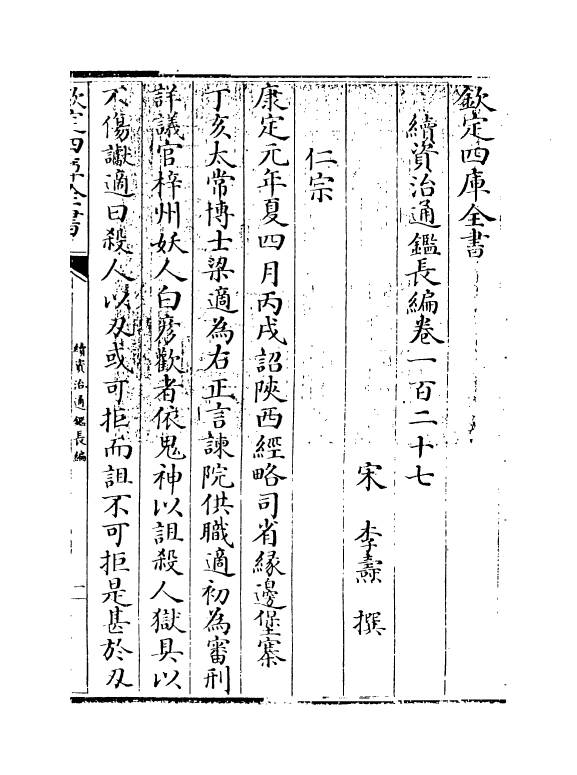 欽定四庫全書
續資治通鑑長編卷一百二十七
宋 李燾 撰
仁宗
康定元年夏四月丙戌詔陜西經略司省緣邊堡寨
丁亥太常博士梁適為右正言諫院供職適初為審刑
詳議官梓州妖人白彦歡者依鬼神以詛殺人獄具以
不傷讞適曰殺人以刃或可拒而詛不可拒是甚於刃
欽定四庫全書
續資治通鑑長編